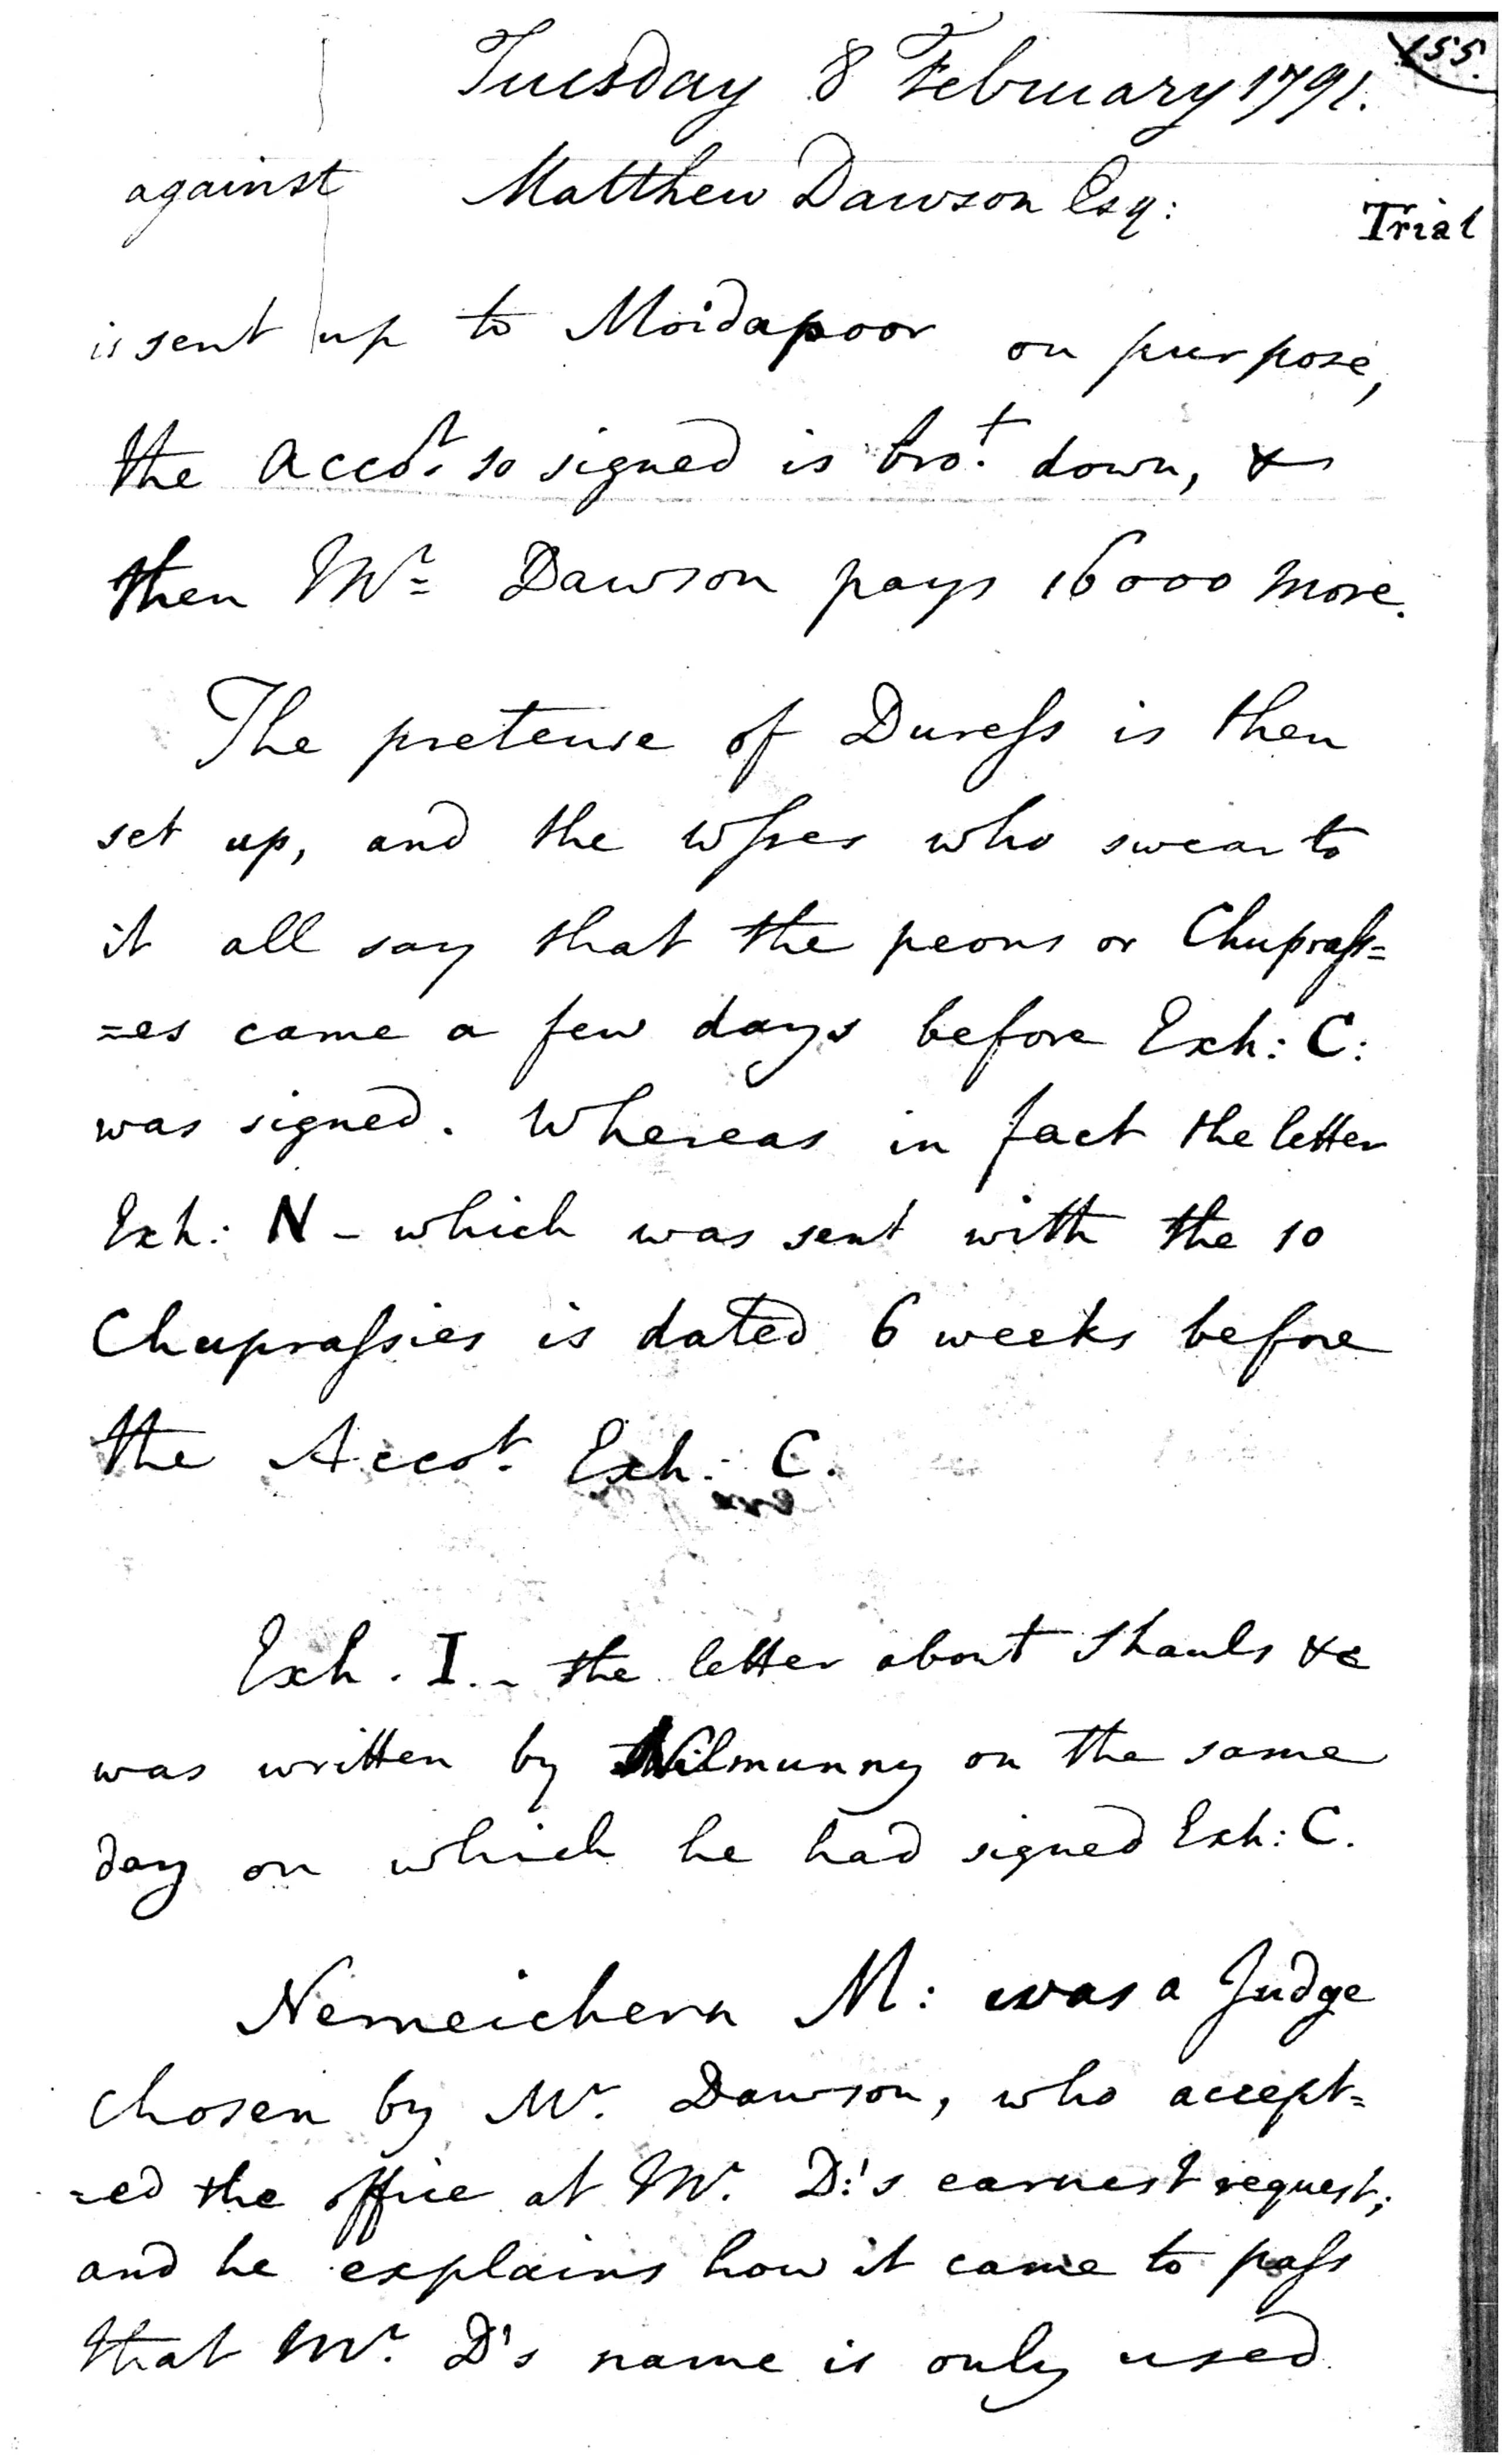 155.
Tuesday 8 February 1791.
against Matthew Dawson Esq:
Trial
is sent up to Moidapoor on purpose,
the Accot. so signed is brot. down, &
then Mr. Dawson pays 16000 more.
The pretense of Duress is then
set up, and the Wsses who swear to
it all say that the peons or Chuprass=
=es came a few days before Exh: C:
was signed. Whereas in fact the letter
Exh: N - which was sent with the 10
Chuprassies is dated 6 weeks before
the Accot. Exh: C.
Exh. I. - the letter about Shauls &c
was written by Nilmunny on the same
day on which he had signed Exh: C.
Nemeichern M: was a Judge
chosen by Mr. Dawson, who accept=
=ed the office at Mr. D:'s earnest request;
and he explains how it came to pass
that Mr. D's name is only used